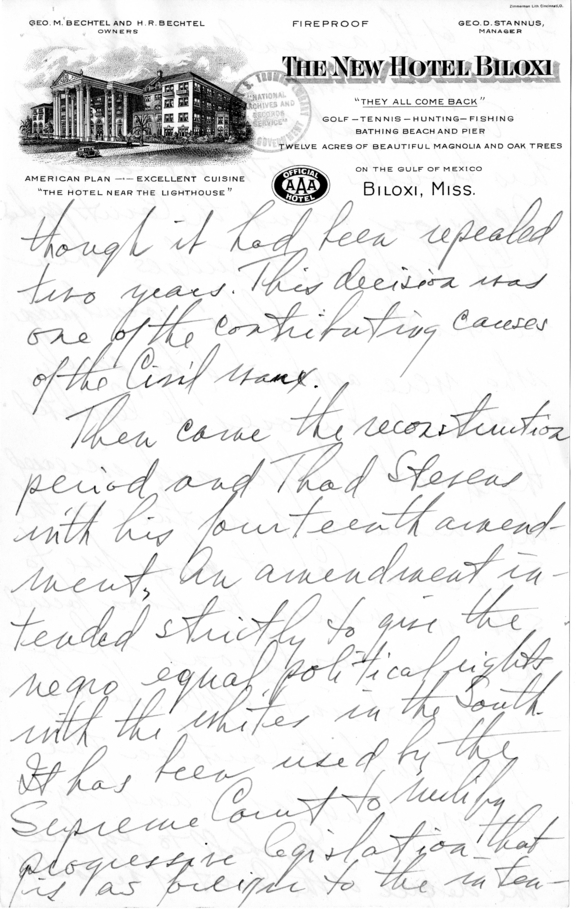 Zimmerman Lith. Cincinnati, O.
GEO. M. BECHTEL AND H. R. BECHTEL
OWNERS
FIREPROOF
GEO. D. STANNUS,
MANAGER
THE NEW HOTEL BILOXI
"THEY ALL COME BACK"
GOLF – TENNIS – HUNTING – FISHING
BATHING BEACH AND PIER
TWELVE ACRES OF BEAUTIFUL MAGNOLIA AND OAK TREES
AMERICAN PLAN – EXCELLENT CUISINE
"THE HOTEL NEAR THE LIGHTHOUSE"
OFFICIAL
AAA
HOTEL
ON THE GULF OF MEXICO
BILOXI, MISS.
NATIONAL
ARCHIVES AND
RECORDS
SERVICE
though it had been repealed
two years. This decision was
one of the contributing causes
of the Civil war.
Then came the reconstruction
period and Thad Stevens
with his fourteenth amend-
ment, An amendment in-
tended strictly to give the
negro equal political rights
with the whites in the South.
It has been used by the
Supreme Court to nulify
progressive legislation that
is as foreign to the inten-